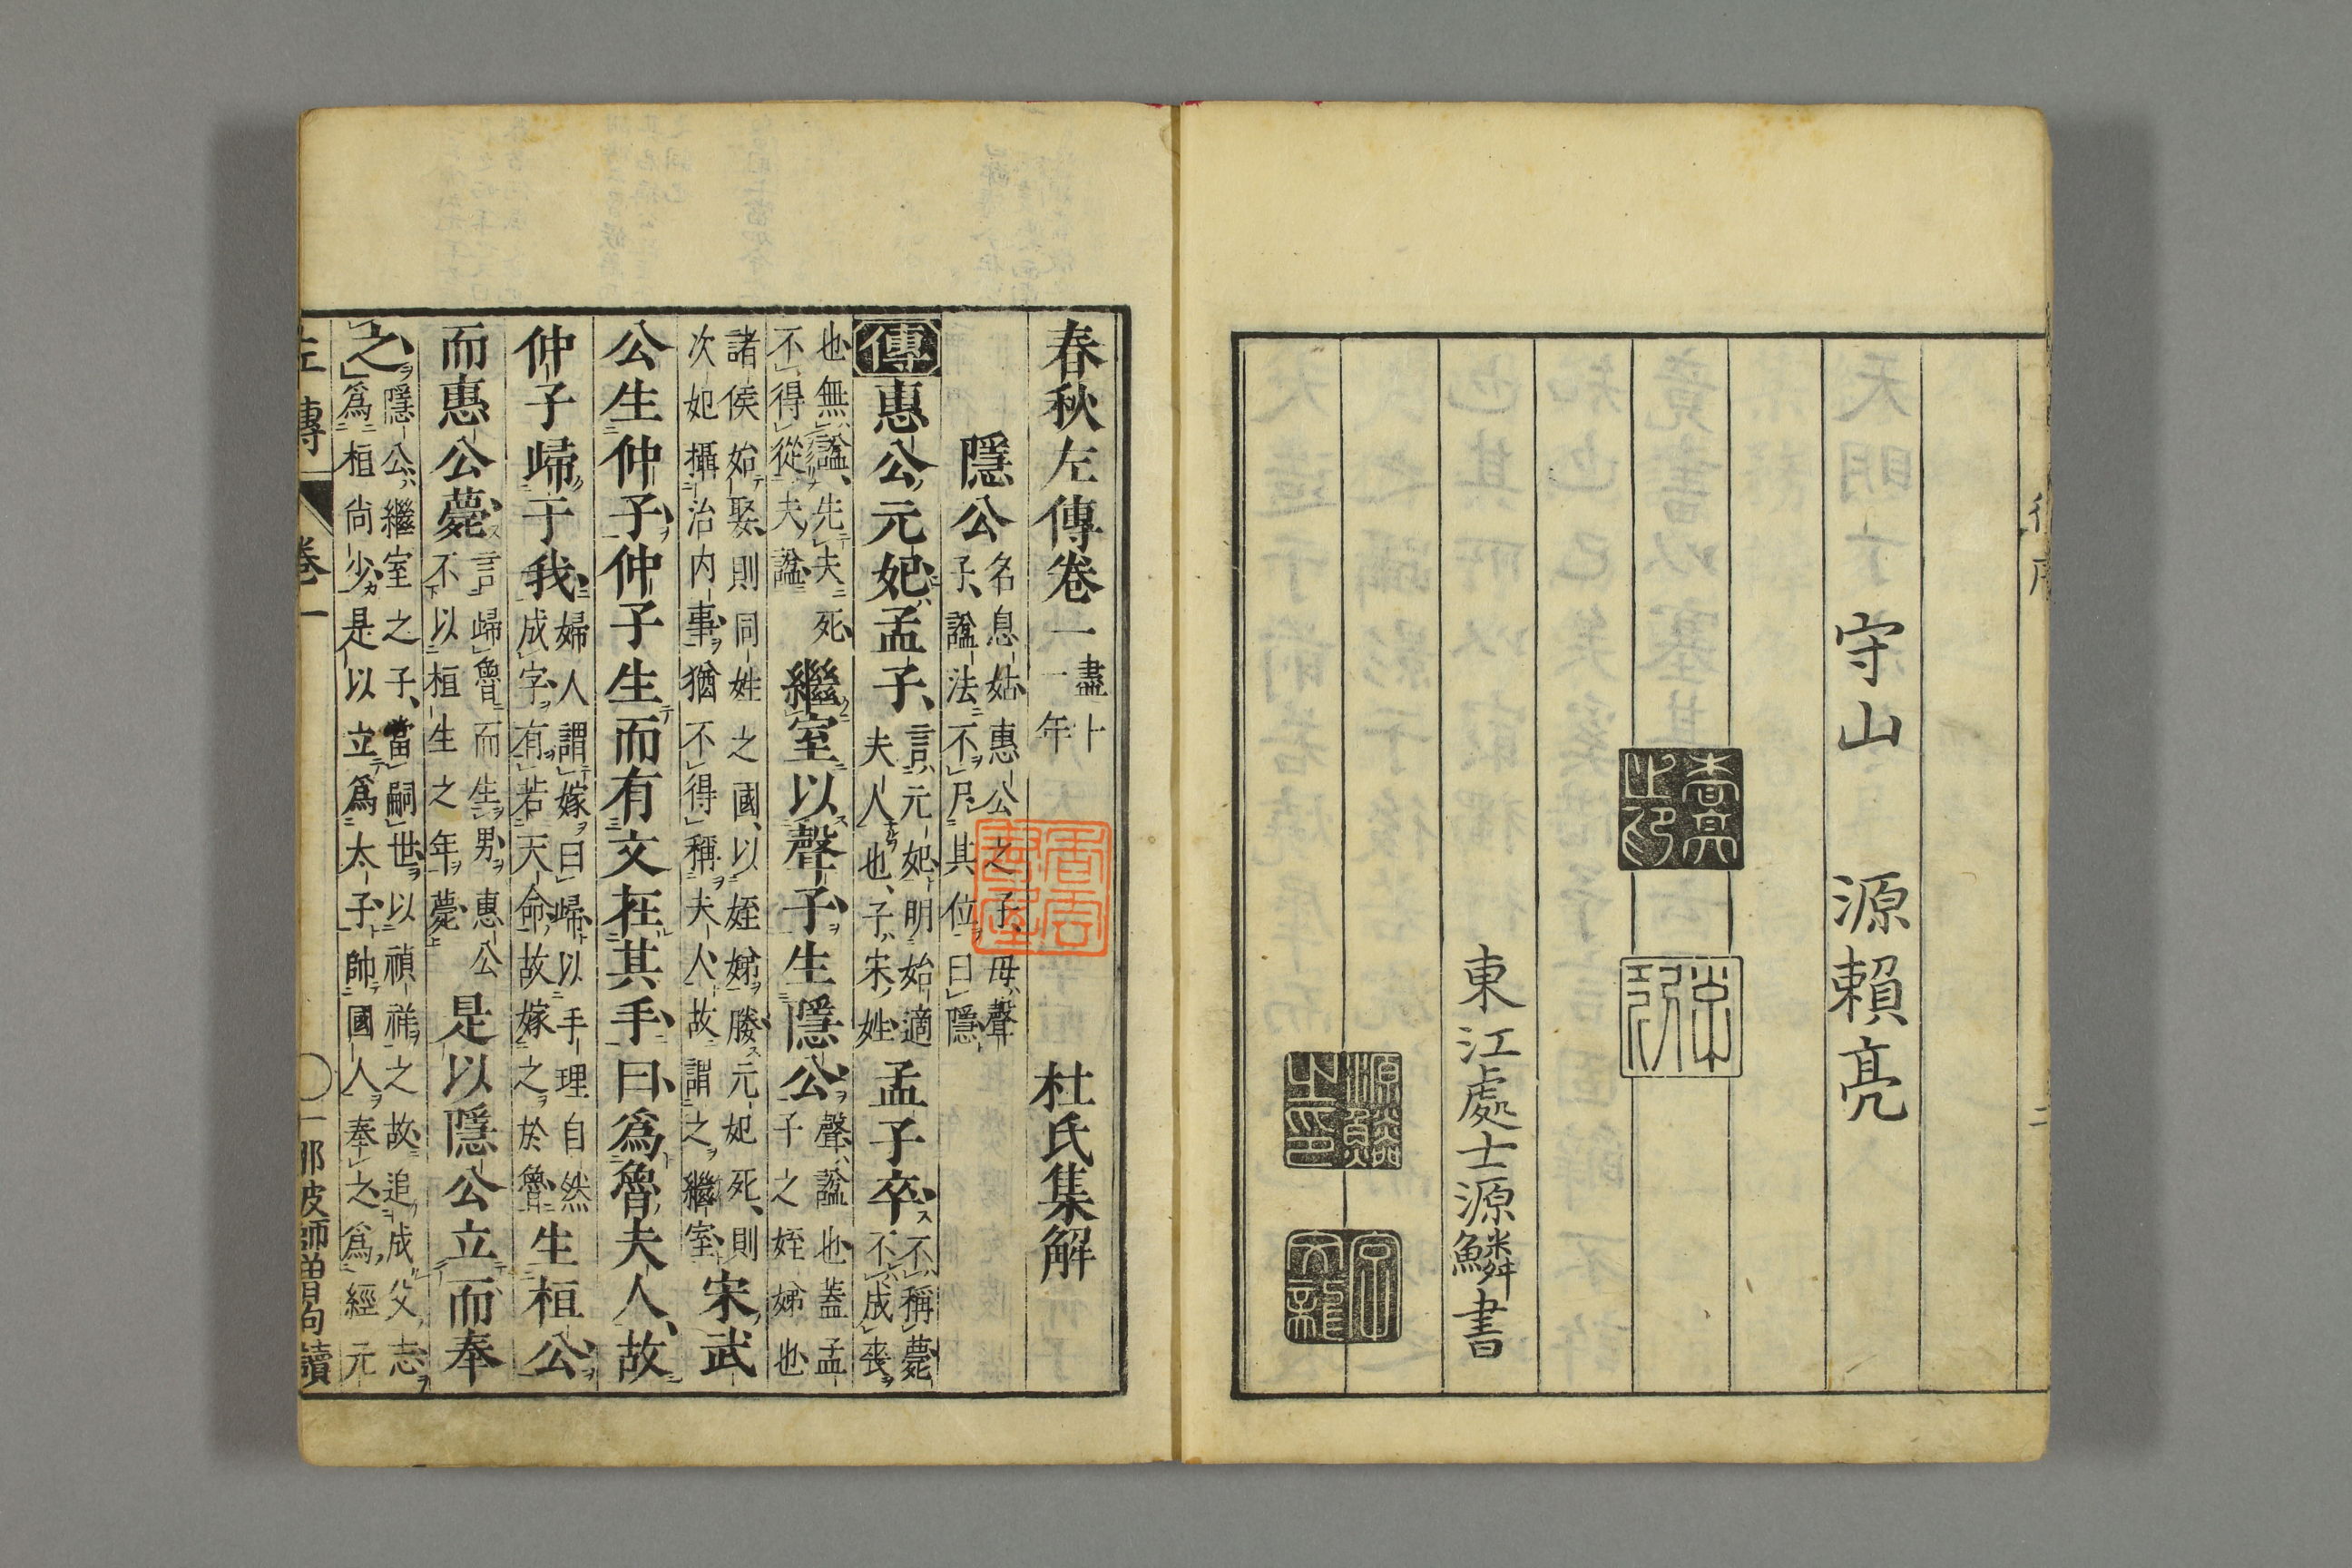 守山　源賴亮
東江處士源鱗書
春秋左傳卷一　盡十一年　杜氏集解
隱公　名息姑惠公之子母聲子諡法不尸其位曰隱
傳惠公元妃孟子　言元妃明始適夫人也子宋姓　孟子卒　不稱薨不成喪
也無諡先夫死不得從夫諡　繼室以聲子生隱公　聲諡也蓋孟子之姪娣也
諸侯始娶則同姓之國以姪娣媵元妃死則次妃攝治内事猶不得稱夫人故謂之繼室　宋武
公生仲子仲子生而有文在其手曰爲魯夫人故
仲子歸于我　婦人謂嫁曰歸以手理自然成字有若天命故嫁之於魯　生桓公
而惠公薨　言歸魯而生男惠公不以桓生之年薨　是以隱公立而奉
之　隱公繼室之子當嗣世以禎祥之故追成父志爲桓尚少是以立爲太子帥國人奉之爲經元
左傳　卷一　一　那波師曾句讀